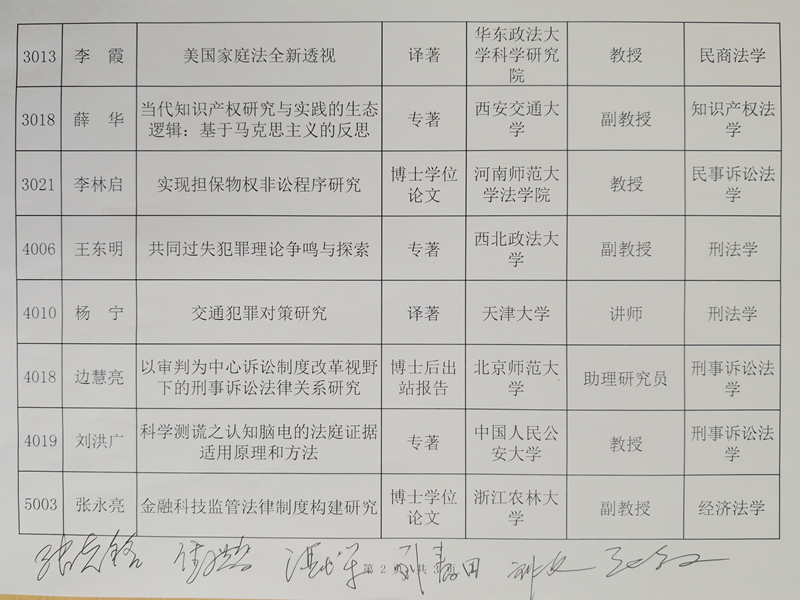 3013 李 霞 美国家庭法全新透视 译著 华东政法大学科学研究院 教授 民商法学
3018 薛 华 当代知识产权研究与实践的生态逻辑：基于马克思主义的反思 专著 西安交通大学 副教授 知识产权法学
3021 李林启 实现担保物权非讼程序研究 博士学位论文 河南师范大学法学院 教授 民事诉讼法学
4006 王东明 共同过失犯罪理论争鸣与探索 专著 西北政法大学 副教授 刑法学
4010 杨 宁 交通犯罪对策研究 译著 天津大学 讲师 刑法学
4018 边慧亮 以审判为中心诉讼制度改革视野下的刑事诉讼法律关系研究 博士后出站报告 北京师范大学 助理研究员 刑事诉讼法学
4019 刘洪广 科学测谎之认知脑电的法庭证据适用原理和方法 专著 中国人民公安大学 教授 刑事诉讼法学
5003 张永亮 金融科技监管法律制度构建研究 博士学位论文 浙江农林大学 副教授 经济法学
第 2 页 共